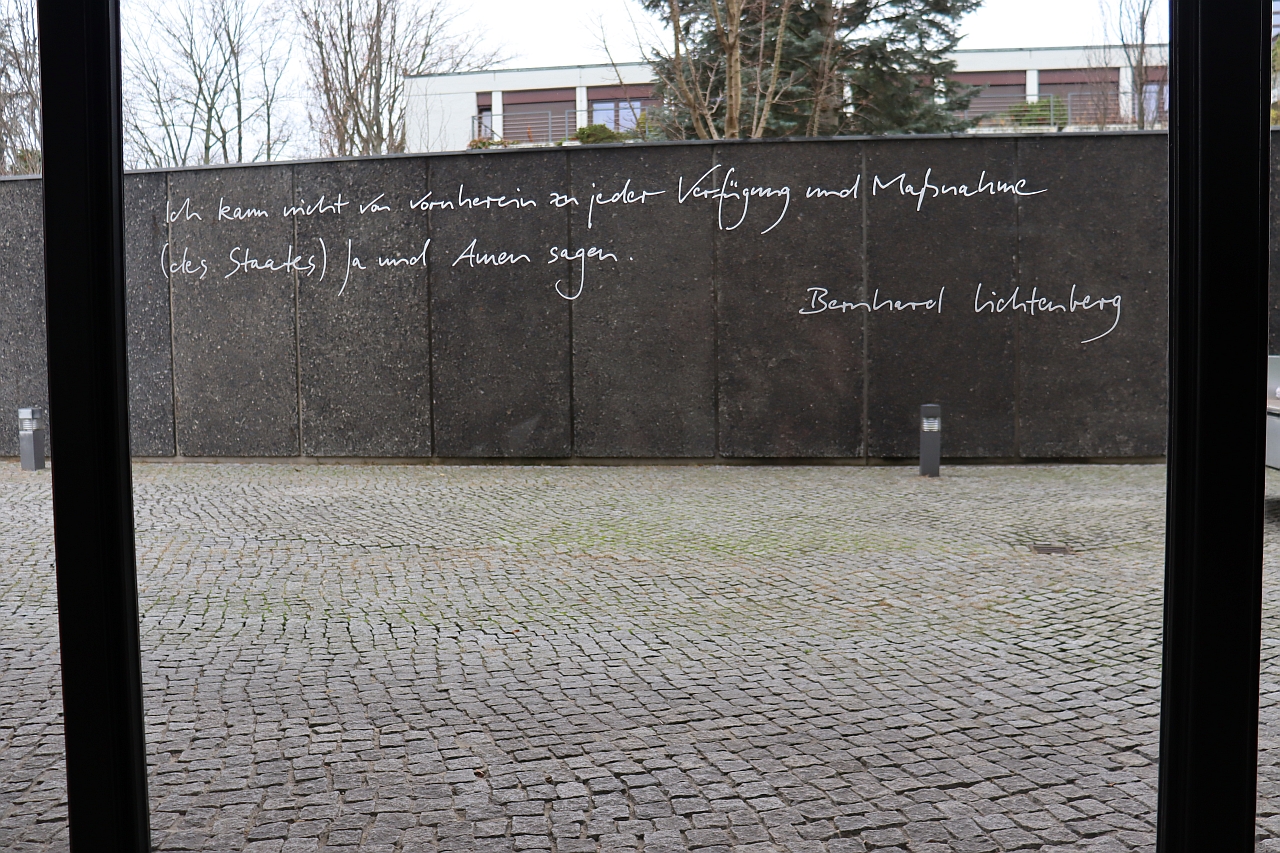 Ich kann nicht von vornherein zu jeder Verfügung und Maßnahme
(des Staates) Ja und Amen sagen.
Bernhard Lichtenberg